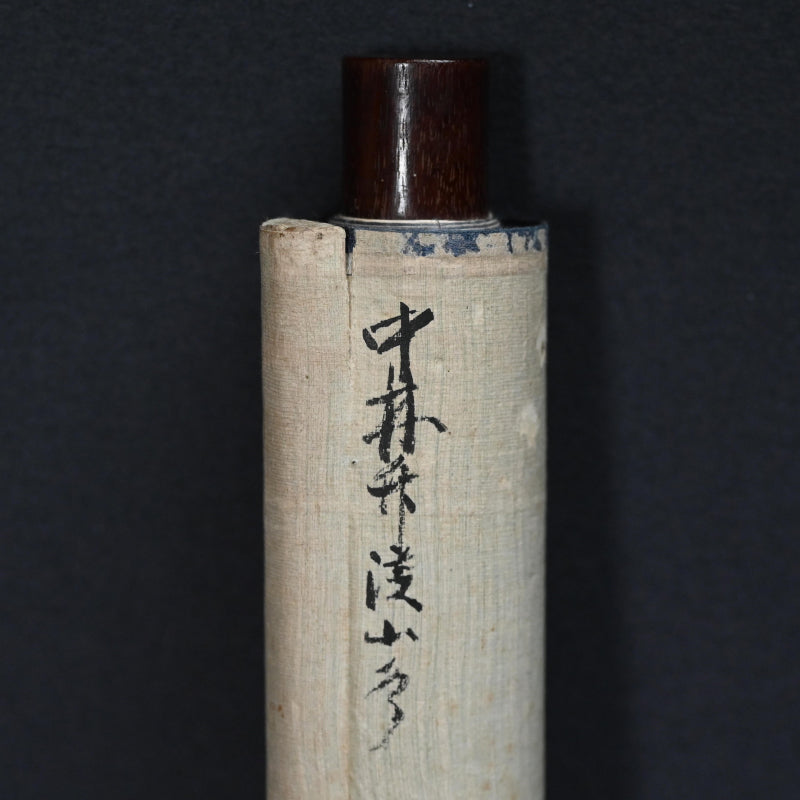 中林竹渓山